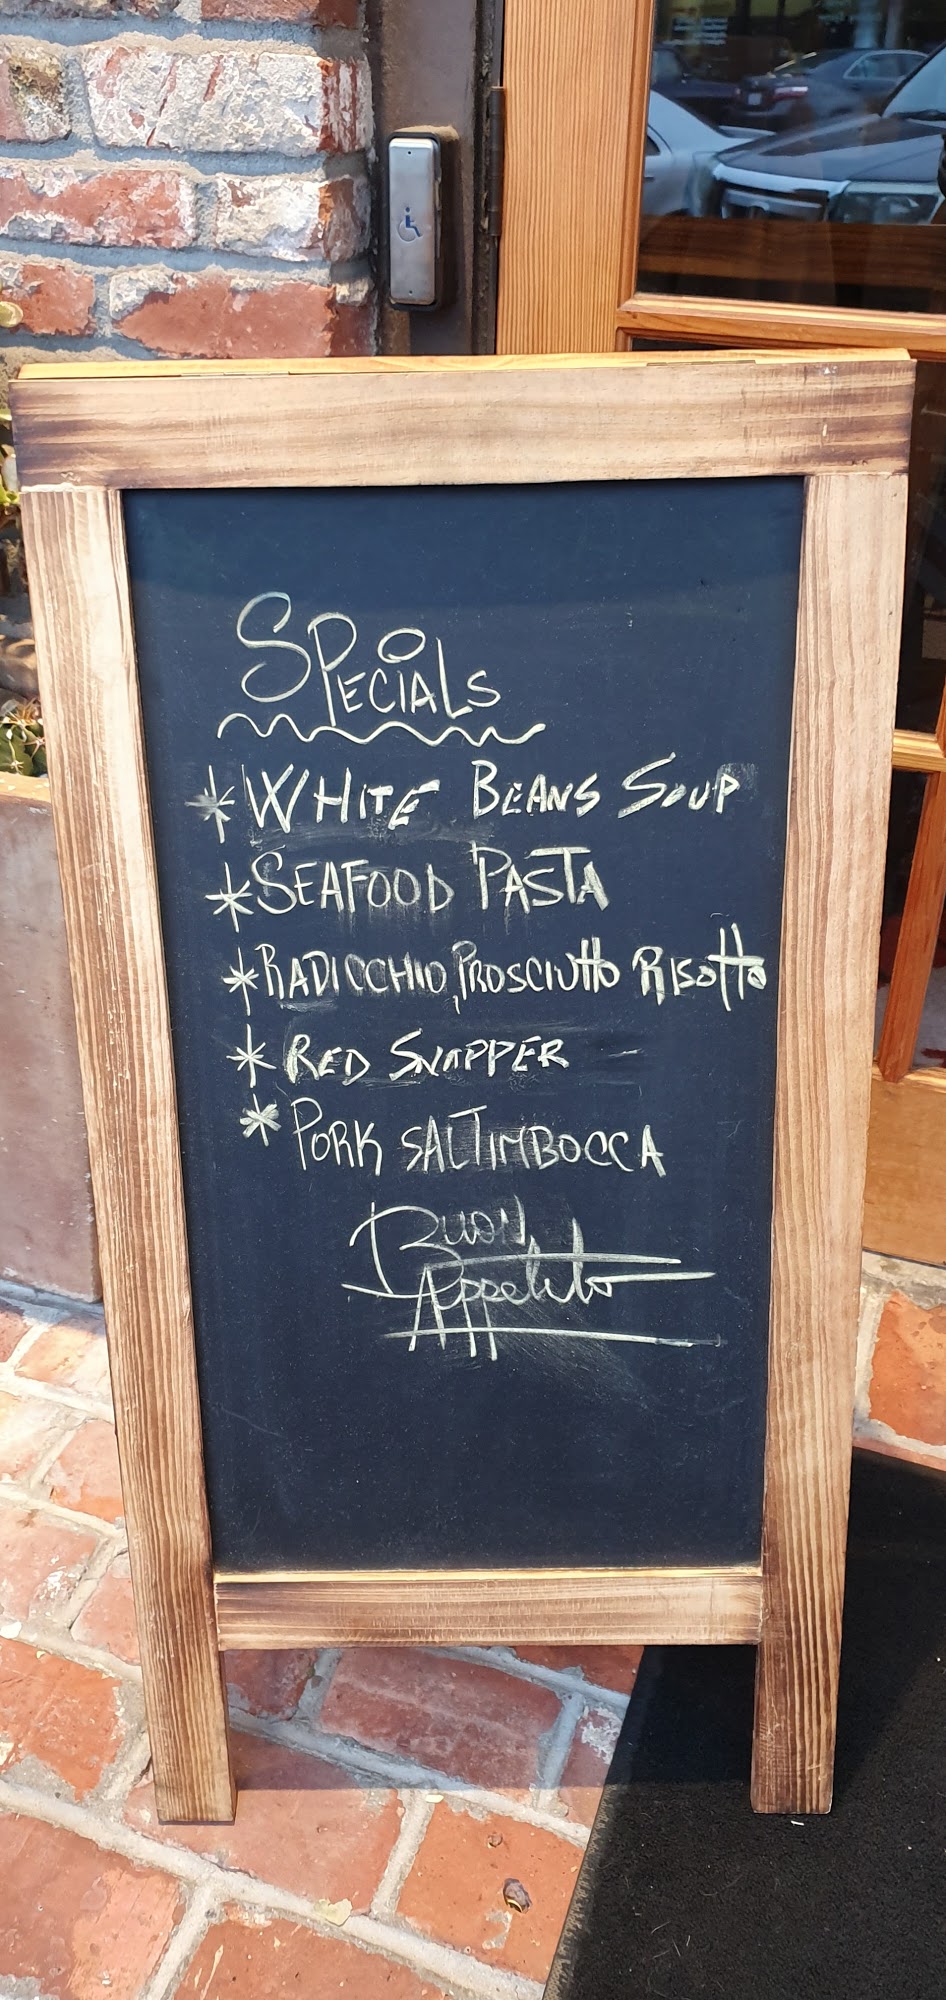 SPECIALS
* WHITE BEANS SOUP
* SEAFOOD PASTA
* RADICCHIO, PROSCIUTTO RISOTTO
* RED SNAPPER
* PORK SALTIMBOCCA
BUON
Appetito